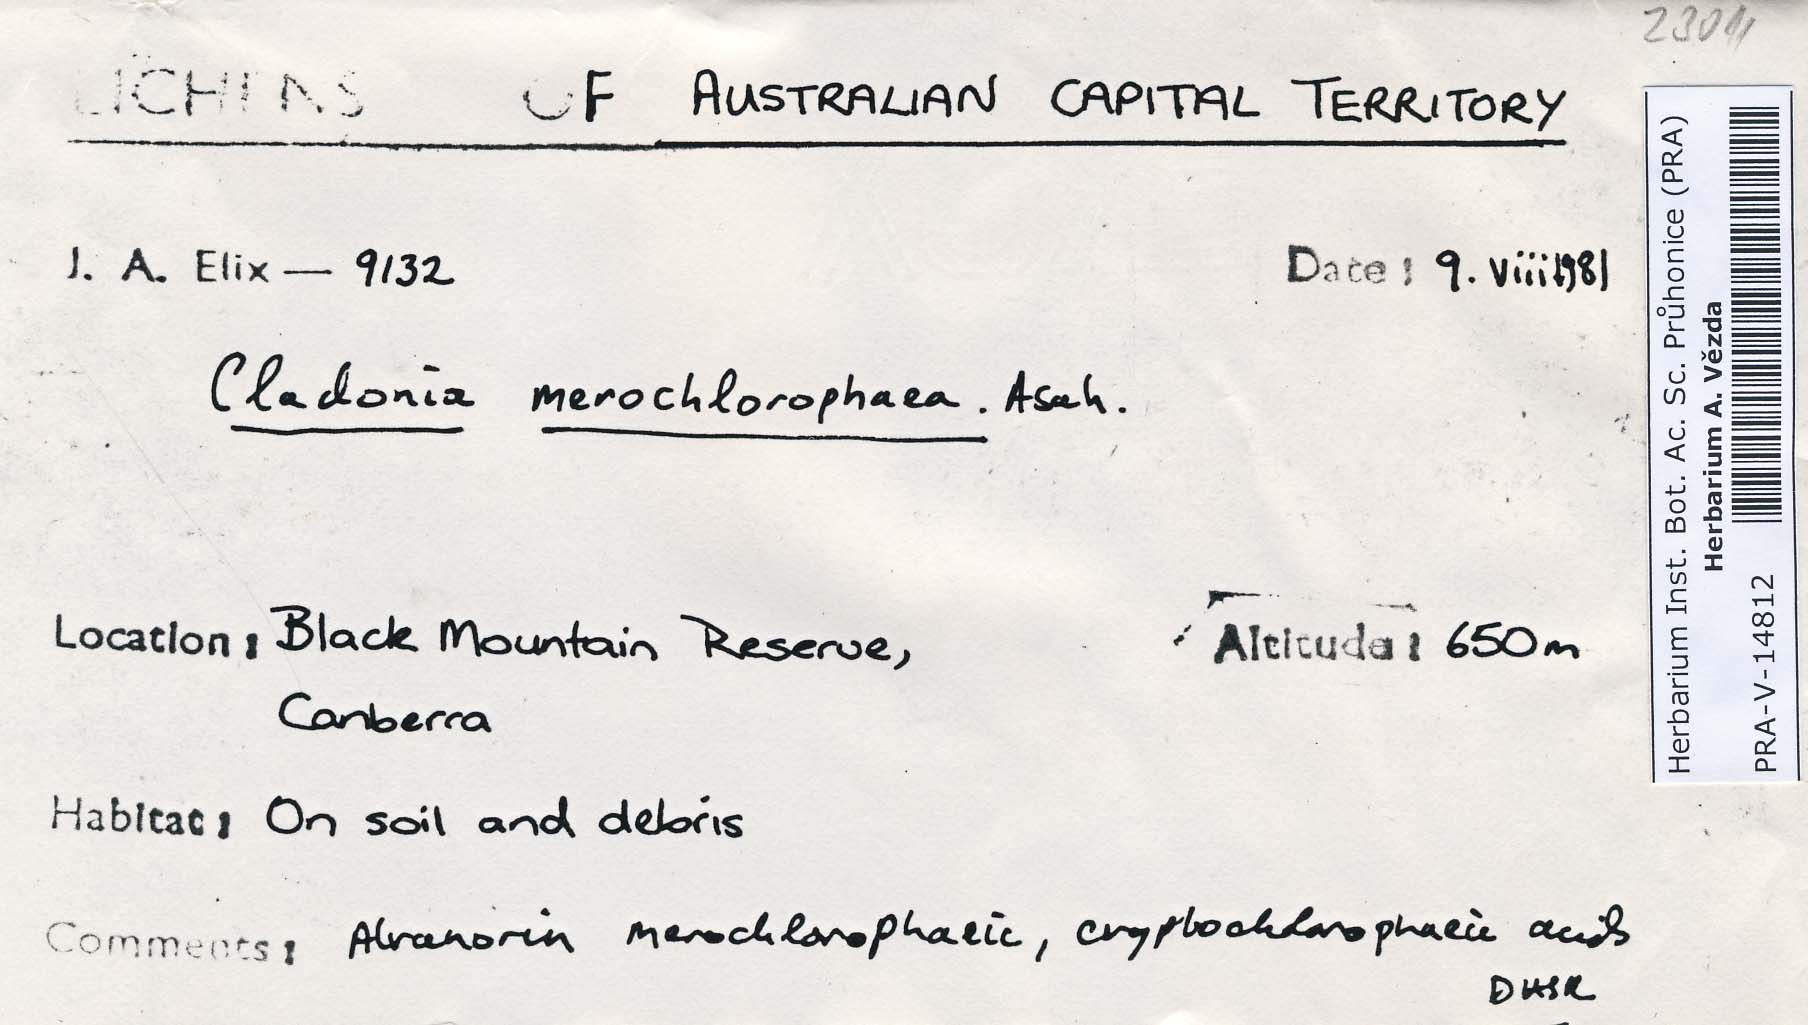 LICHENS OF AUSTRALIAN CAPITAL TERRITORY
J. A. Elix — 9132 Date: 9. viii 1981
Cladonia merochlorophaea. Asah.
Location: Black Mountain Reserve, Altitude: 650m
Canberra
Habitat: On soil and debris
Comments: Atranorin merochlorophaeic, cryptochlorophaeic acids
Herbarium Inst. Bot. Ac. Sc. Průhonice (PRA)
Herbarium A. Vězda
PRA-V-14812